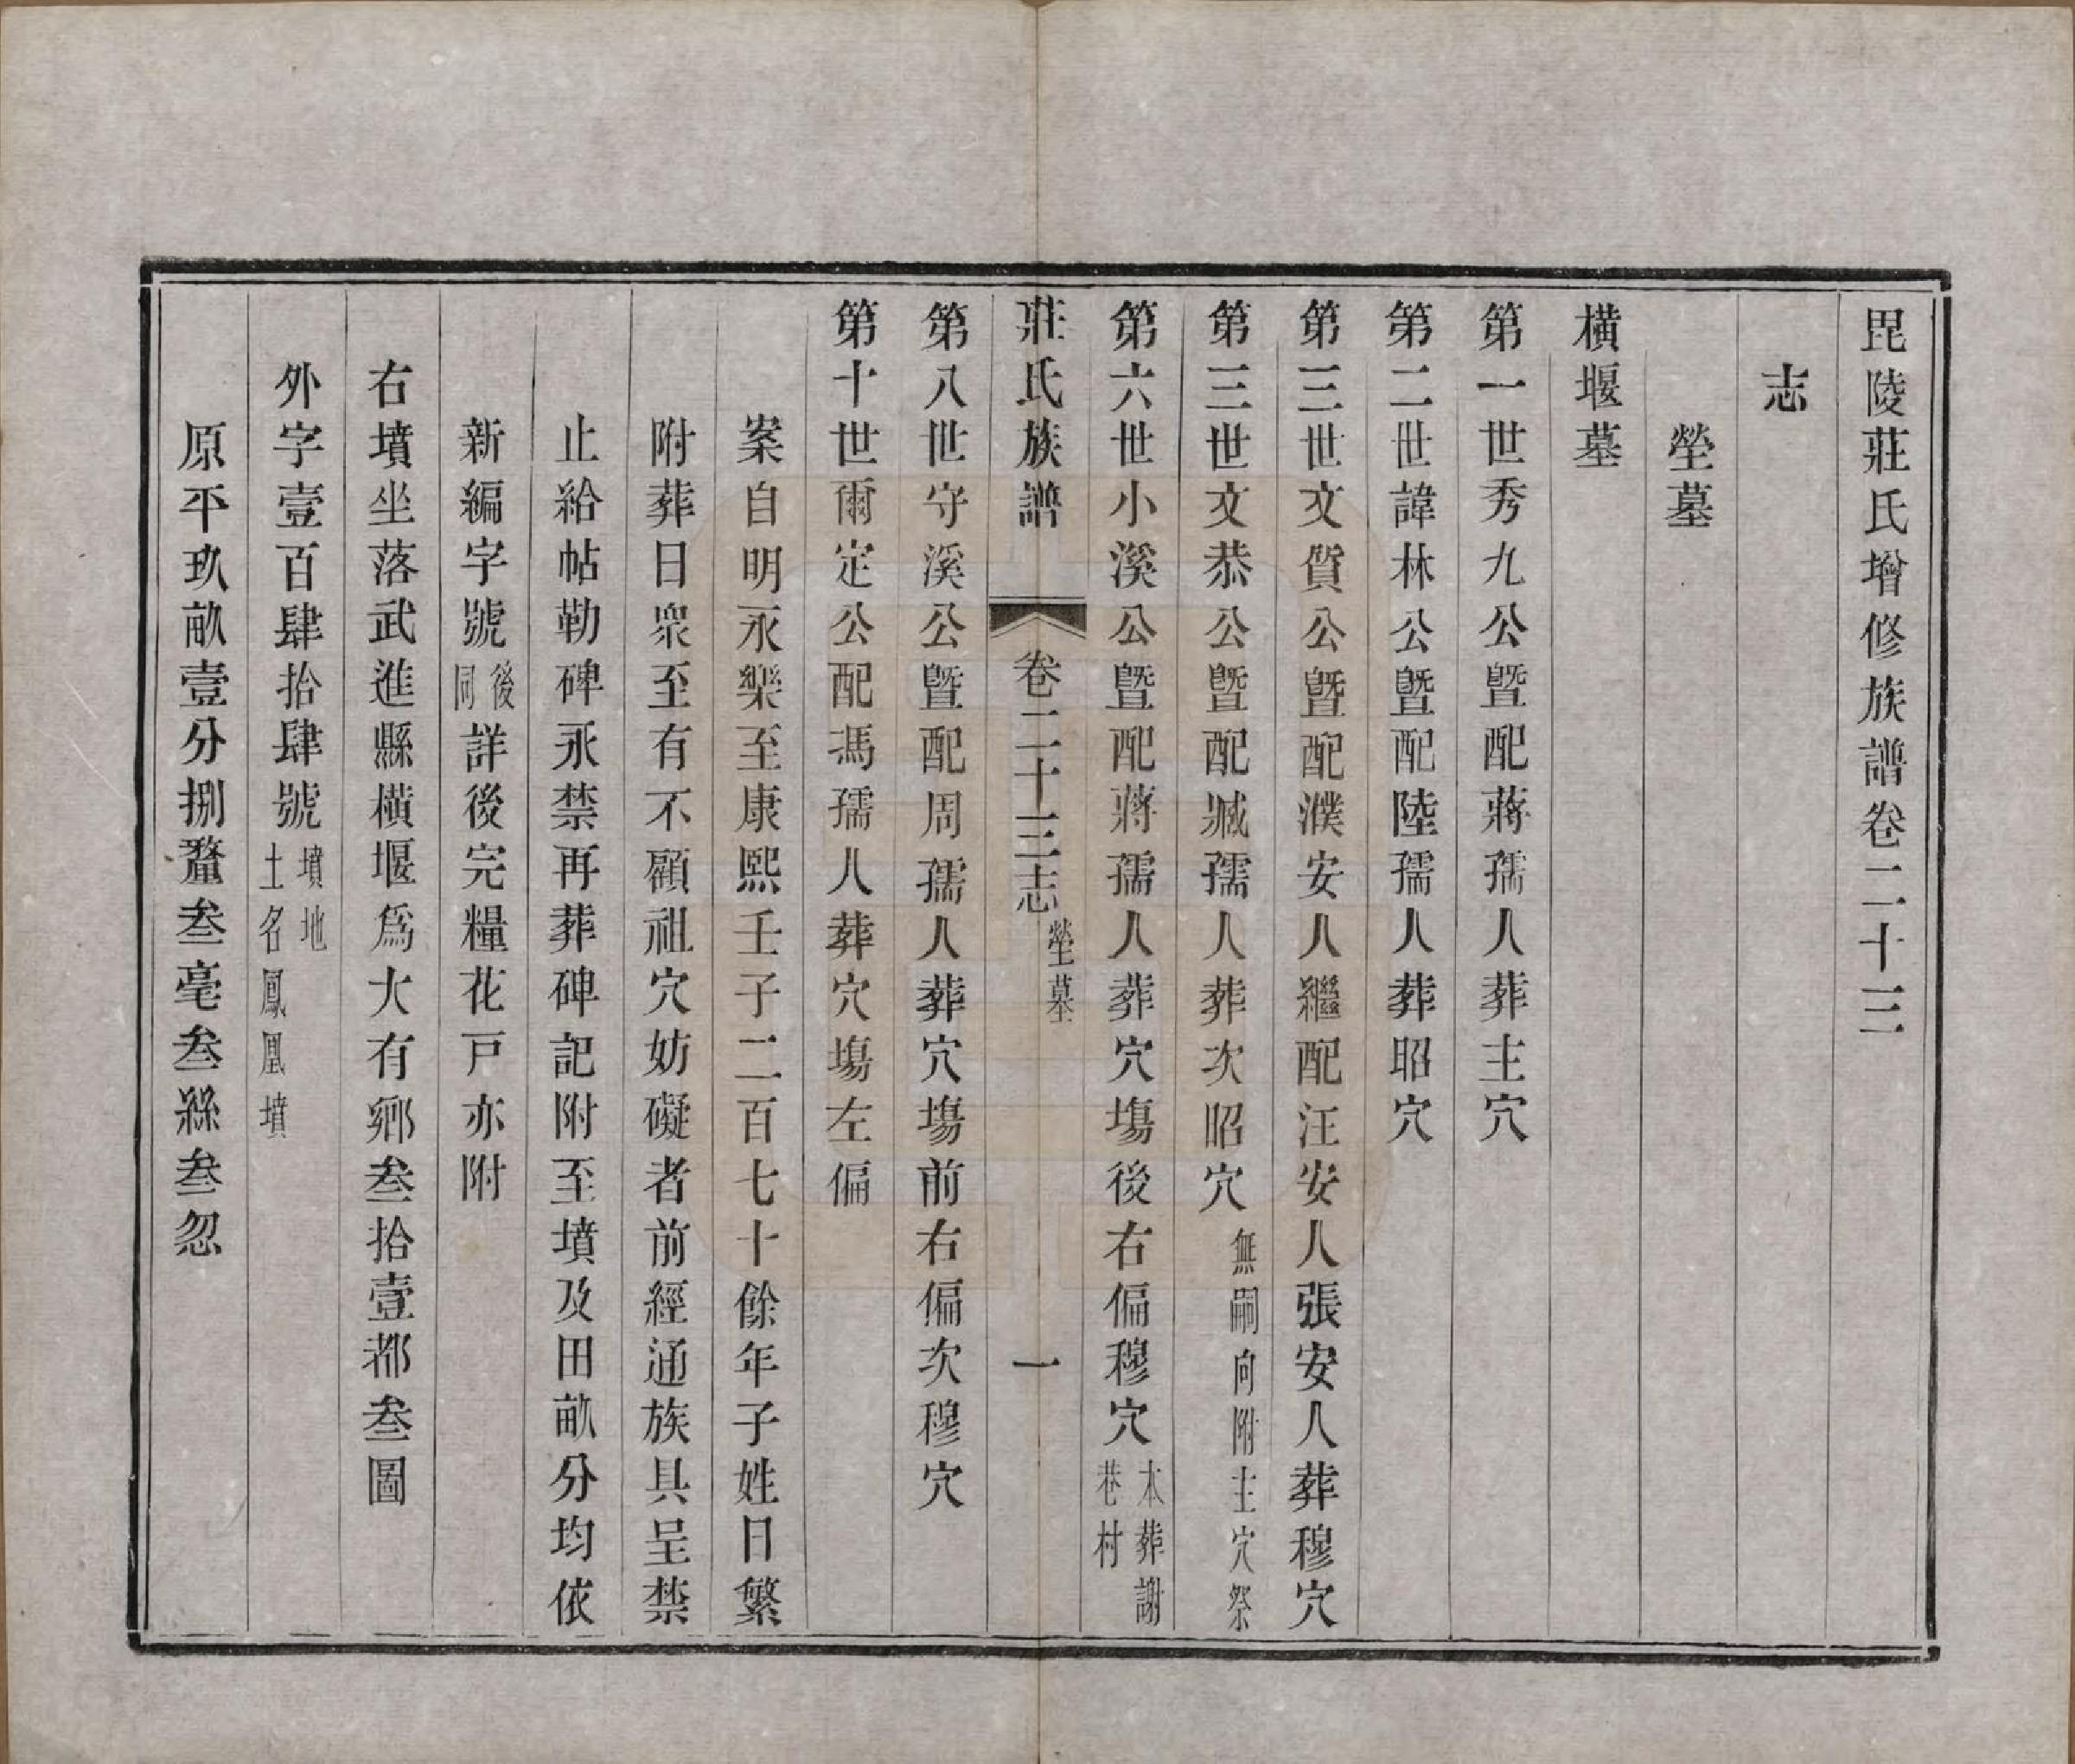 毘陵莊氏增修族譜卷二十三
志
塋墓
橫堰墓
第一世秀九公暨配蔣孺人葬主穴
第二世諱林公暨配陸孺人葬昭穴
第三世文質公暨配濮安人繼配汪安人張安人葬穆穴
第三世文恭公暨配臧孺人葬次昭穴無嗣向附主穴祭
第六世小溪公暨配蔣孺人葬穴塲後右偏穆穴本葬謝巷村
莊氏族譜 卷二十三志塋墓 一
第八世守溪公暨配周孺人葬穴塲前右偏次穆穴
第十世爾定公配馮孺人葬穴塲左偏
案自明永樂至康熙壬子二百七十餘年子姓日繁
附葬日衆至有不顧祖穴妨礙者前經通族具呈禁
止給帖勒碑永禁再葬碑記附至墳及田畝分均依
新編字號後同詳後完糧花戸亦附
右墳坐落武進縣橫堰爲大有鄉叁拾壹都叁圖
外字壹百肆拾肆號墳地土名鳳凰墳
原平玖畝壹分捌釐叁毫叁絲叁忽